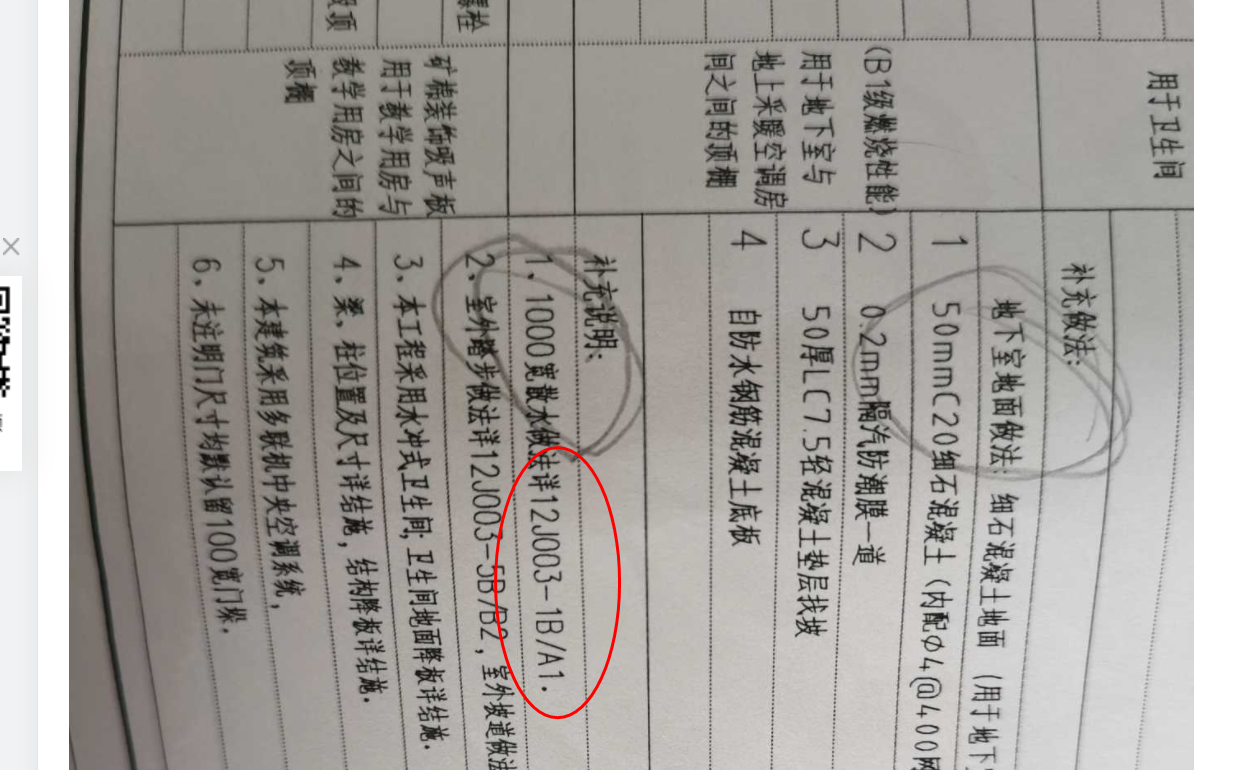 用于卫生间
（B1级燃烧性能）
用于地下室与
地上采暖空调房
间之间的顶棚
矿棉装饰吸声板
用于教学用房与
教学用房之间的
顶棚
补充做法：
地下室地面做法：细石混凝土地面（用于地下
1 50mmC20细石混凝土（内配φ4@400网
2 0.2mm隔汽防潮膜一道
3 50厚LC7.5轻混凝土垫层找坡
4 自防水钢筋混凝土底板
补充说明：
1、1000宽散水做法详12J003-1B/A1.
2、室外踏步做法详12J003-5B/B2，室外坡道做法
3、本工程采用水冲式卫生间；卫生间地面降板详结施.
4、梁、柱位置及尺寸详结施，结构降板详结施.
5、本建筑采用多联机中央空调系统，
6、未注明门尺寸均默认留100宽门垛.